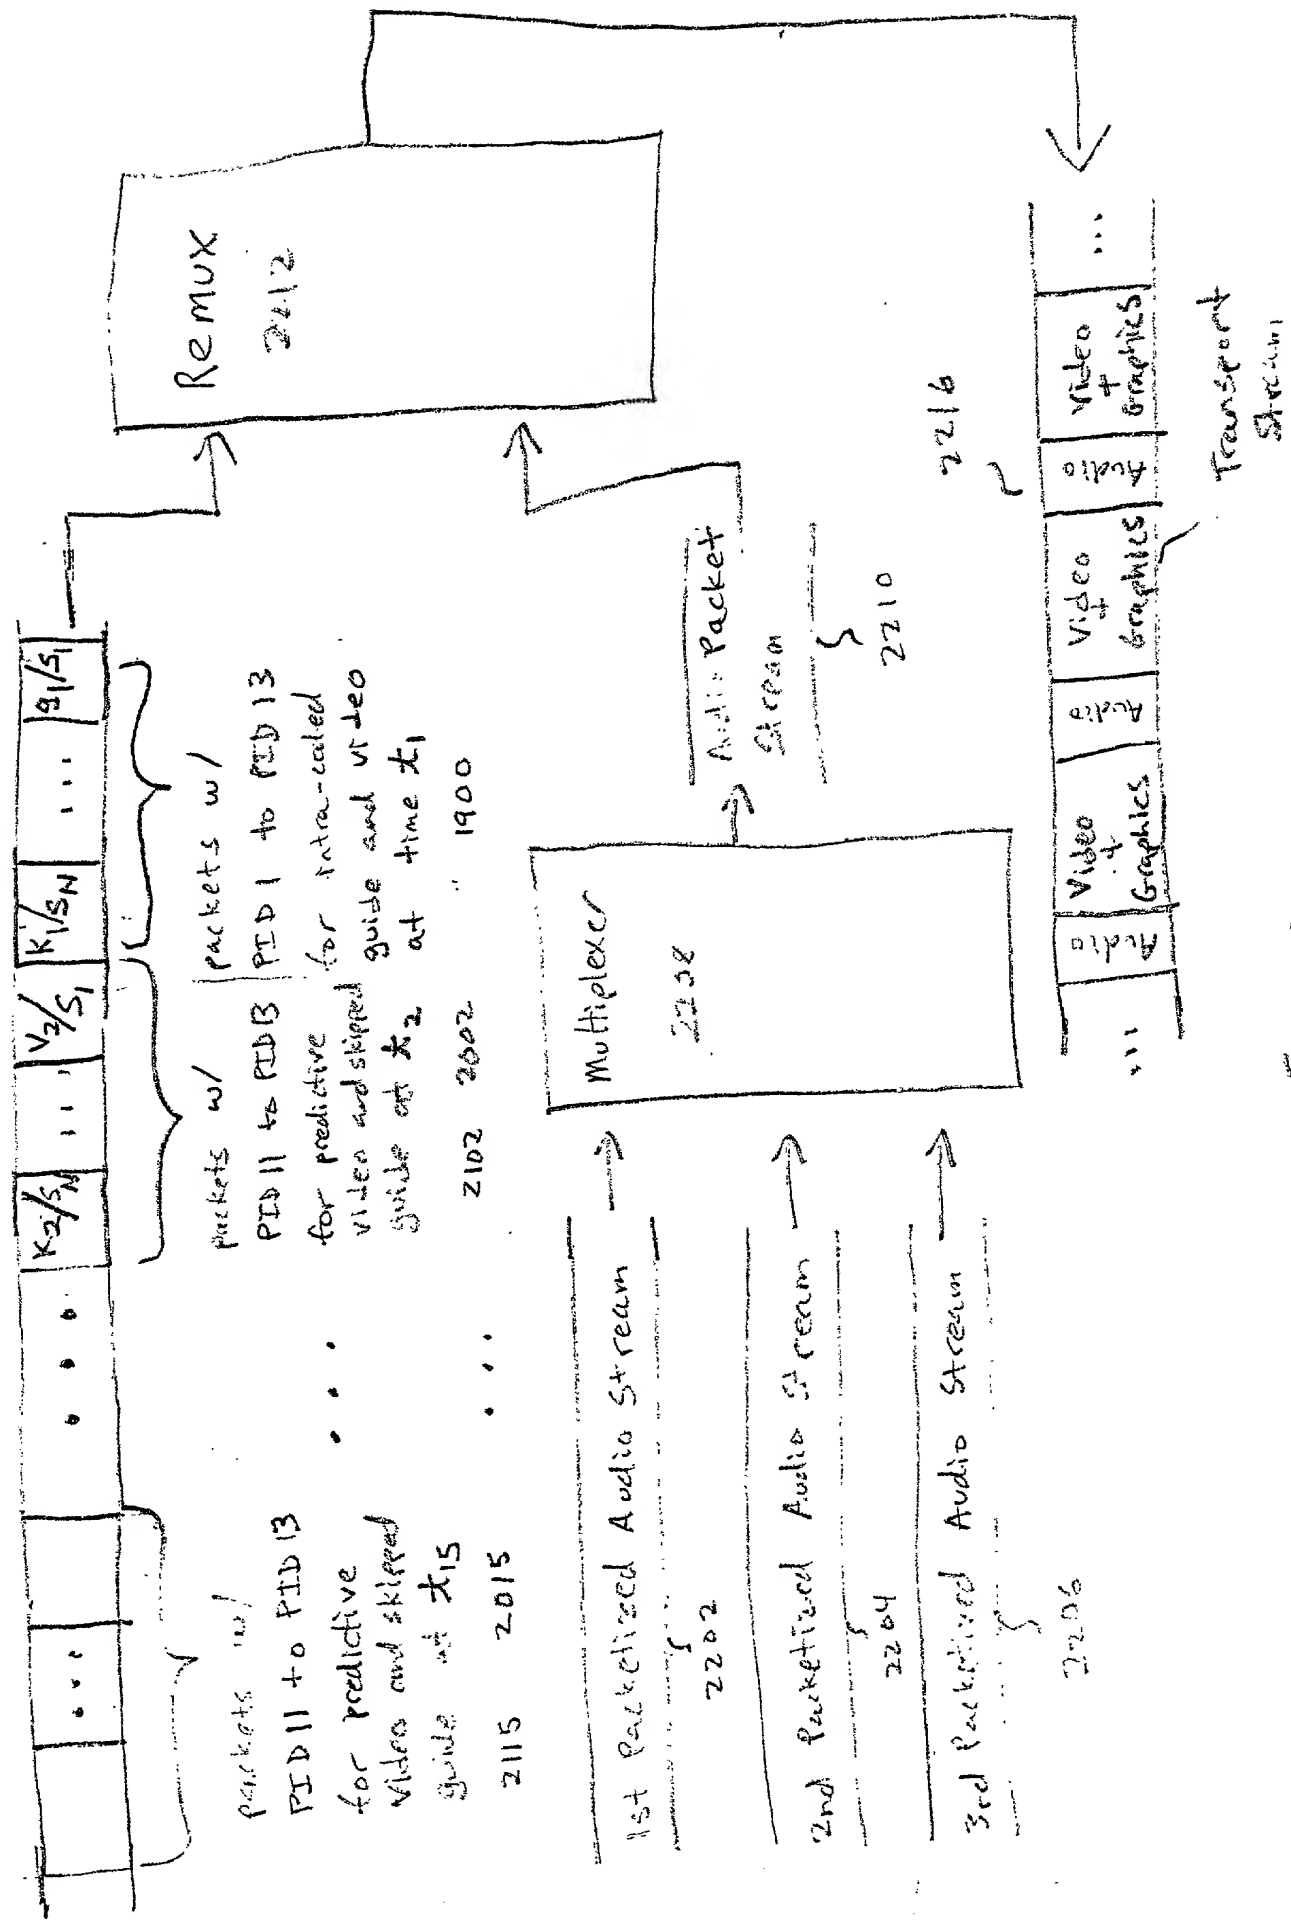 K2/SN
...
V2/S1
K1/SN
...
g1/S1
...
...
packets w/
PID 11 to PID 13
for predictive
video and skipped
guide at t15
2115 2015
...
...
packets w/
PID 11 to PID13
for predictive
video and skipped
guide at t2
2102 2002
packets w/
PID 1 to PID 13
for intra-coded
guide and video
at time t1
1900
Remux
2212
1st Packetized Audio Stream
2202
2nd Packetized Audio Stream
2204
3rd Packetized Audio Stream
2206
Multiplexer
2208
Audio Packet
Stream
2210
2216
...
Audio
Video
+
Graphics
Audio
Video
+
Graphics
Audio
Video
+
Graphics
...
Transport
Stream